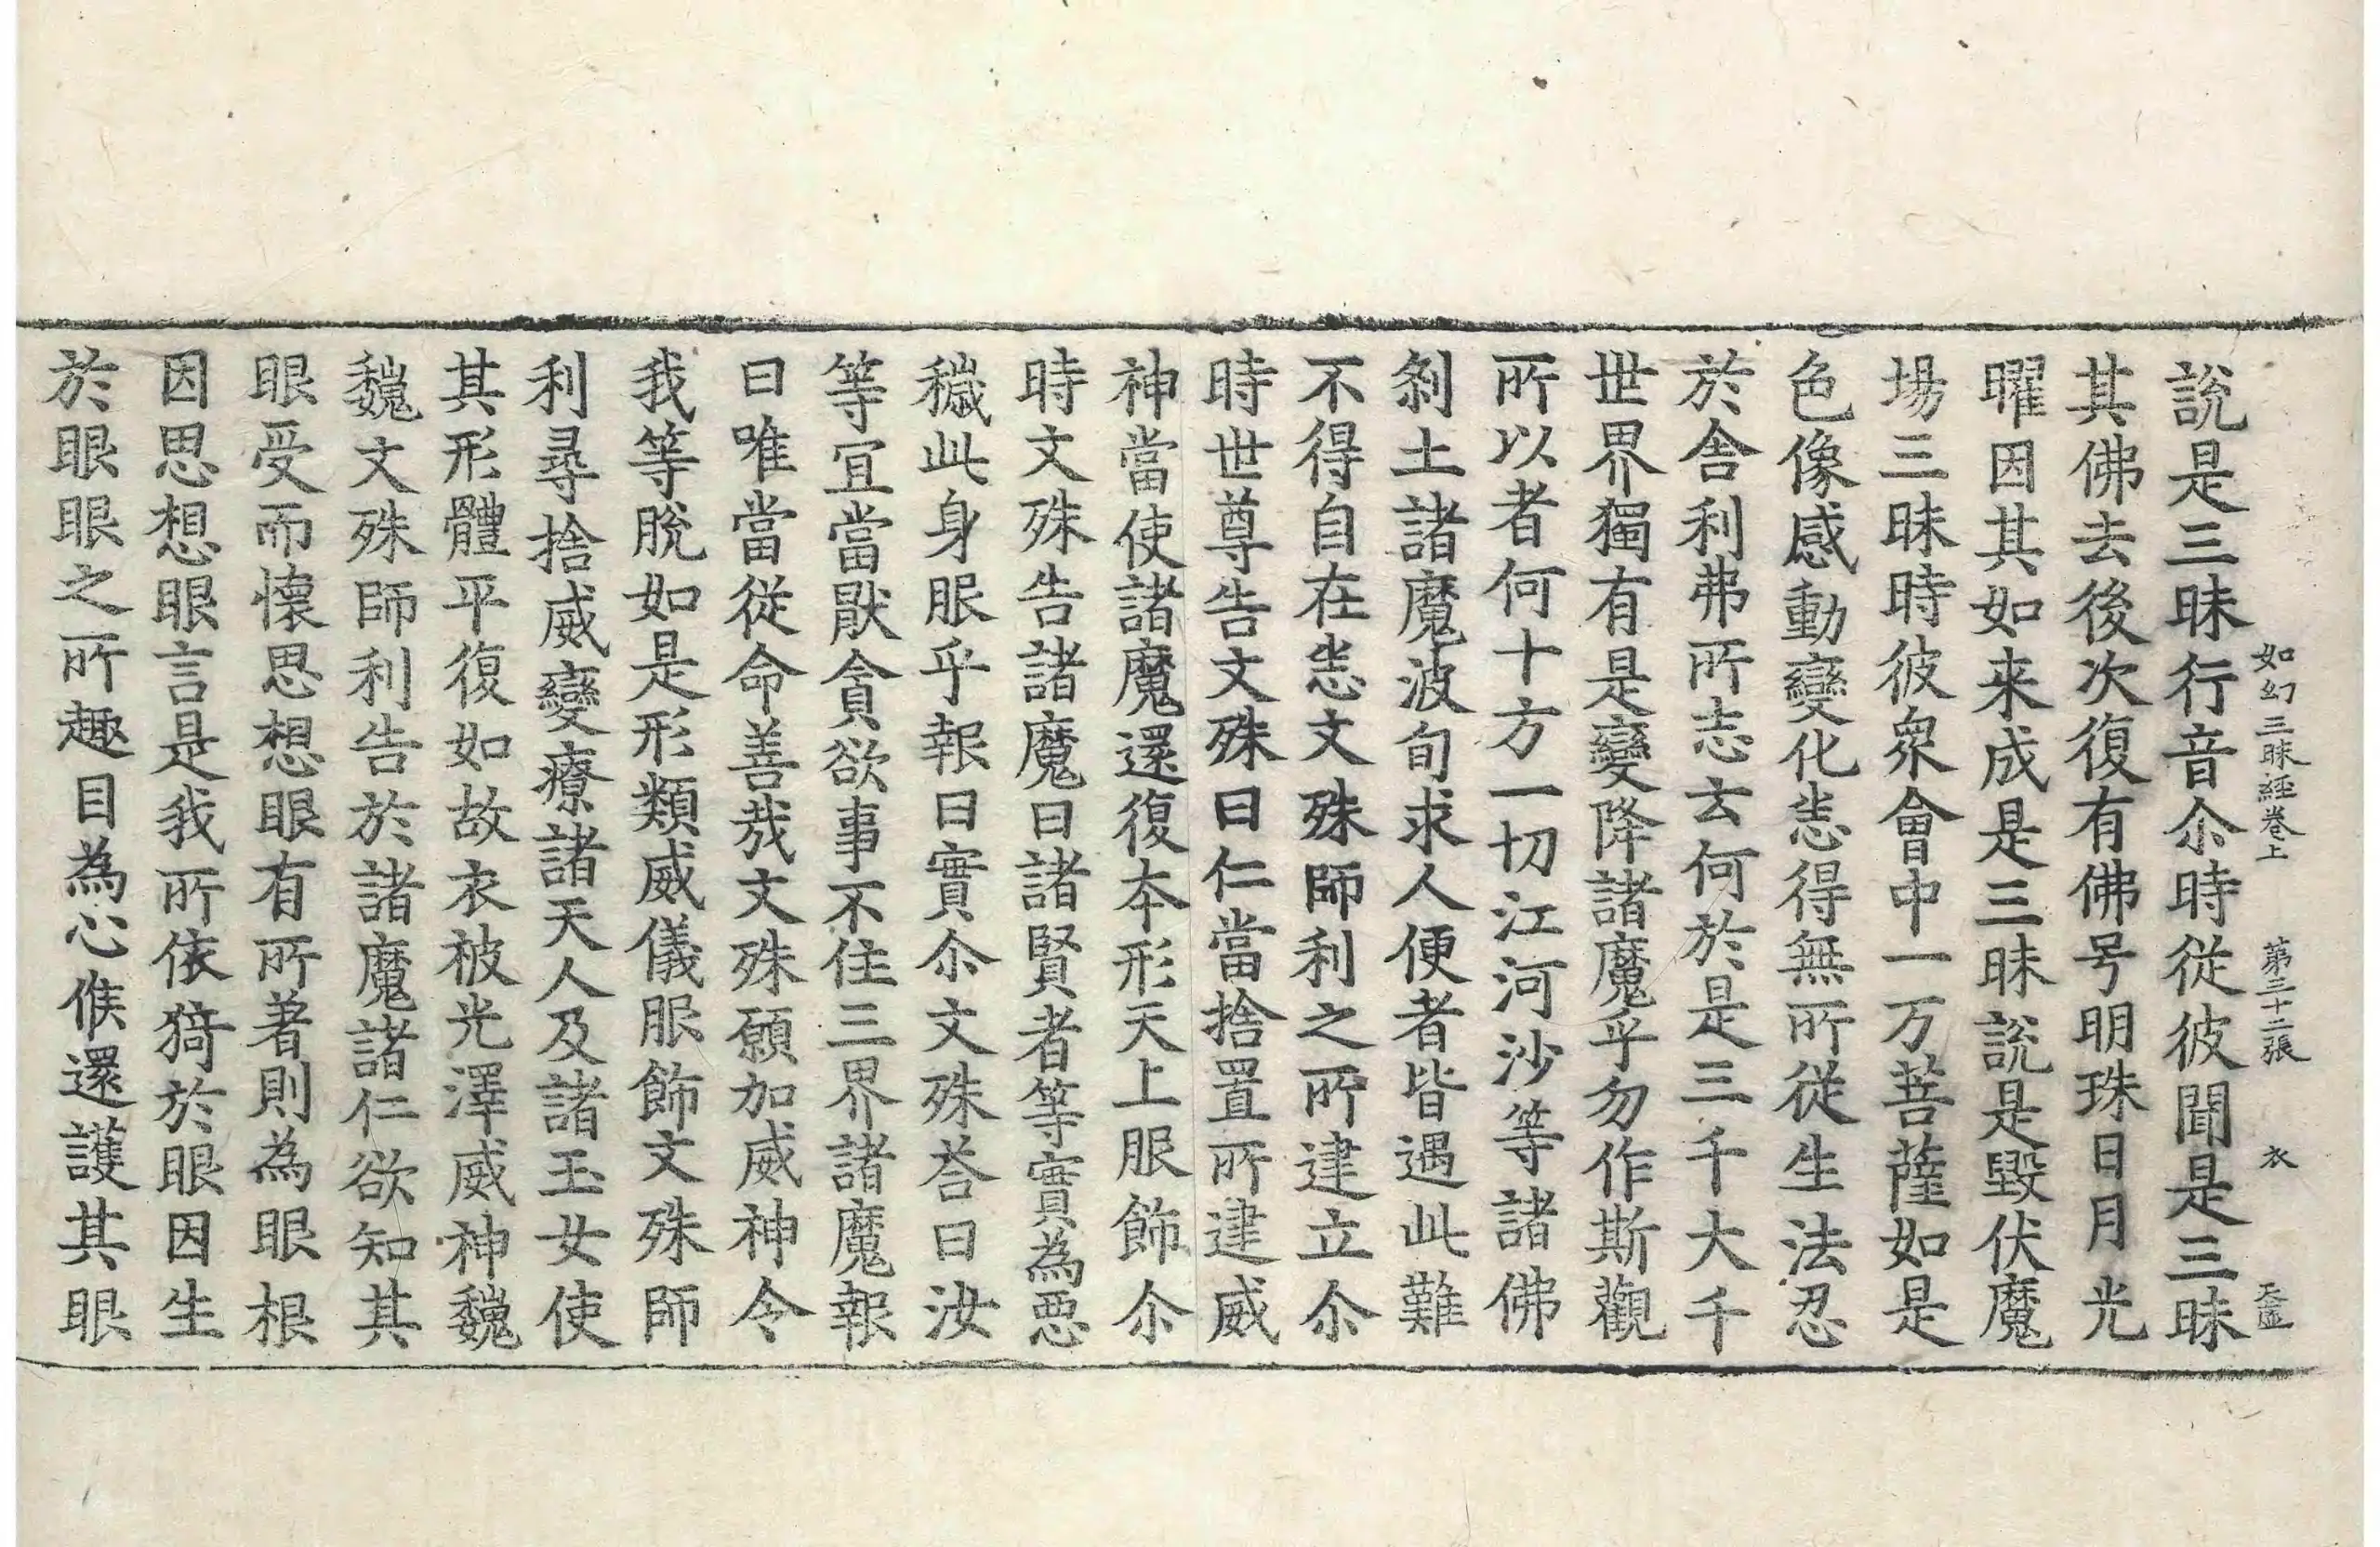 如幻三昧經卷上 第三十二張 衣
說是三昧行音尒時從彼聞是三昧
其佛去後次復有佛号明珠日月光
曜因其如来成是三昧說是毀伏魔
場三昧時彼衆會中一万菩薩如是
色像感動變化悉得無所從生法忍
於舍利弗所志云何於是三千大千
世界獨有是變降諸魔乎勿作斯觀
所以者何十方一切江河沙等諸佛
刹土諸魔波旬求人便者皆遇此難
不得自在悉文殊師利之所建立尒
時世尊告文殊曰仁當捨置所建威
神當使諸魔還復本形天上服飾尒
時文殊告諸魔曰諸賢者等實為惡
穢此身服乎報曰實尒文殊荅曰汝
等宜當猒貪欲事不住三界諸魔報
曰唯當從命善哉文殊願加威神令
我等脫如是形類威儀服飾文殊師
利尋捨威變療諸天人及諸玉女使
其形體平復如故衣被光澤威神巍
巍文殊師利告於諸魔諸仁欲知其
眼受而懷思想眼有所著則為眼根
因思想眼言是我所依猗於眼因生
於眼眼之所趣目為心候還護其眼